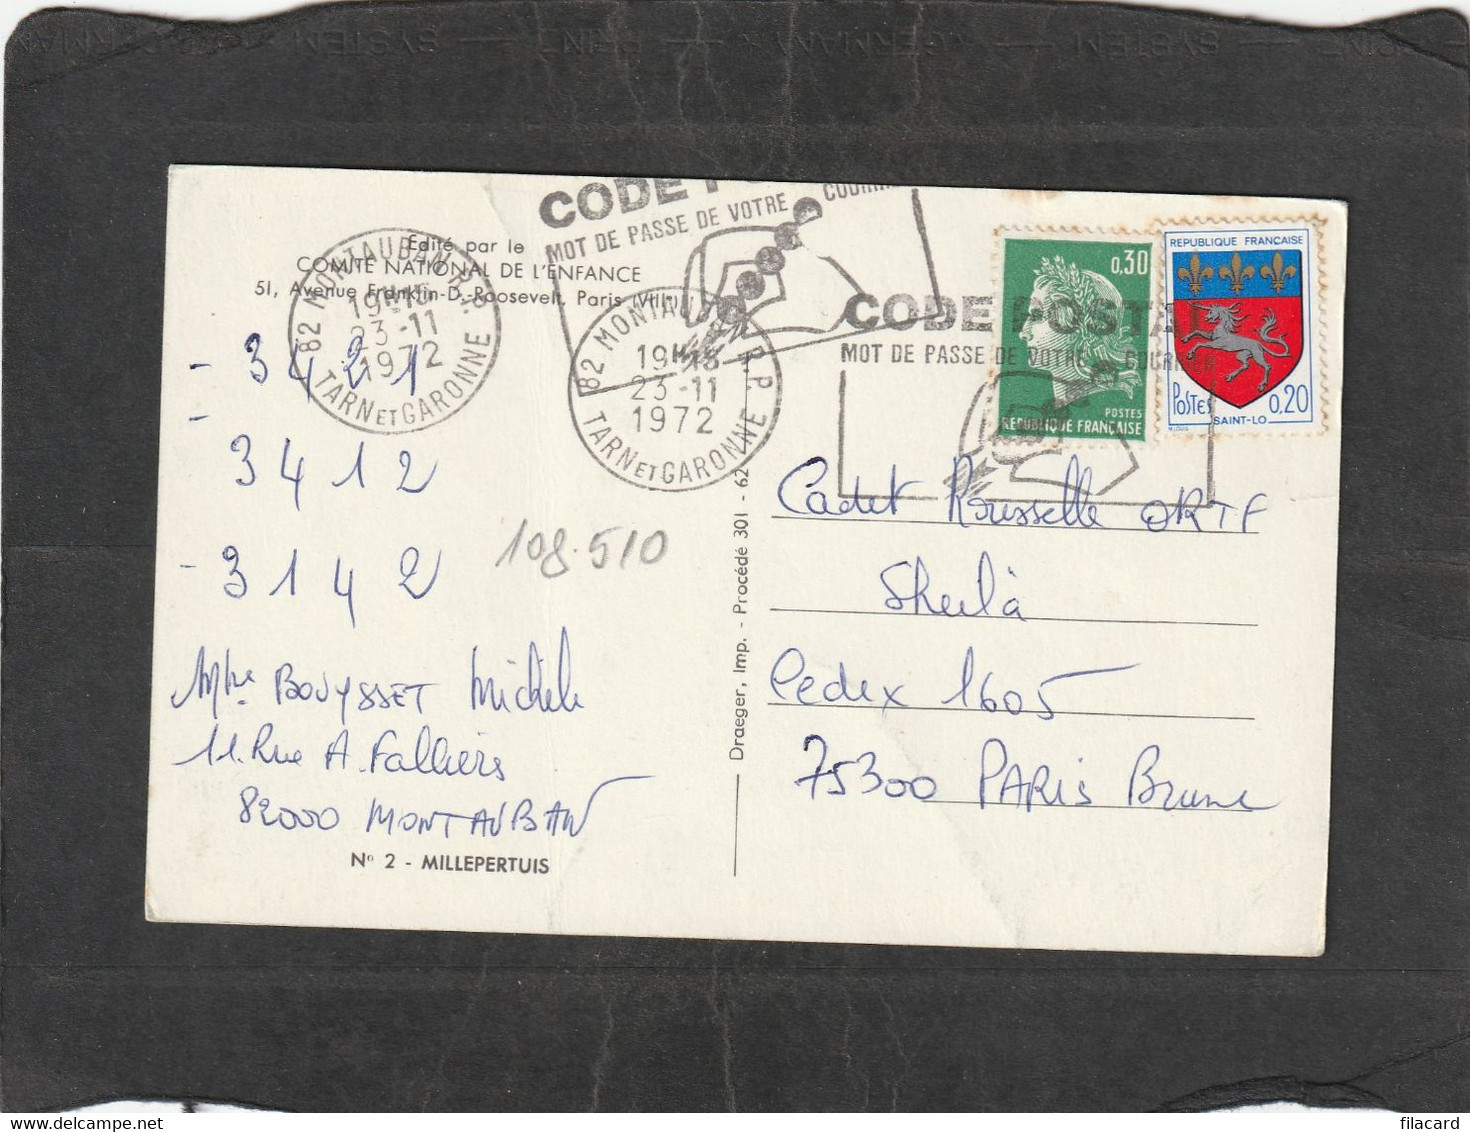 CODE
MOT DE PASSE DE VOTRE
Edité par le
COMITE NATIONAL DE L'ENFANCE
51, Avenue Franklin-D.-Roosevelt, Paris
82 MONTAUBAN R.P.
23-11
1972
TARN ET GARONNE
82 MONTAUBAN R.P.
19H15
23-11
1972
TARN ET GARONNE
CODE POSTAL
MOT DE PASSE DE VOTRE COURRIER
0,30
POSTES
REPUBLIQUE FRANÇAISE
REPUBLIQUE FRANÇAISE
POSTES 0,20
SAINT-LO
- 3421
- 3412
- 3142
108.510
Mme BOUYSSET Michèle
11. Rue A. Fallières
82000 MONTAUBAN
N° 2 - MILLEPERTUIS
Draeger, Imp. - Procédé 301 - 62
Cadet Rousselle ORTF
Sheila
Cedex 1605
75300 PARIS Brune
filacard